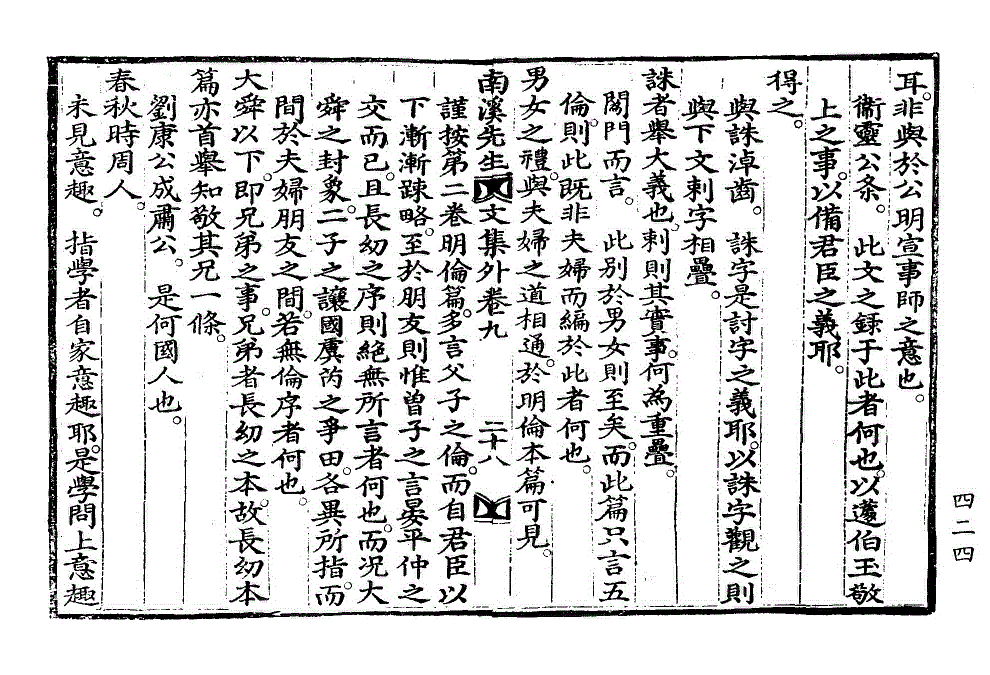 耳。非與於公明宣事師之意也。
衞靈公条。 此文之錄于此者何也。以蘧伯玉敬
上之事。以備君臣之義耶。
得之。
與誅淖齒。 誅字是討字之義耶。以誅字觀之則
與下文刺字相疊。
誅者擧大義也。刺則其實事。何為重疊。
閨門而言。 此別於男女則至矣。而此篇只言五
倫。則此既非夫婦而編於此者何也。
男女之禮。與夫婦之道相通。於明倫本篇可見。
南溪先生文集外卷九 二十八
謹按第二卷明倫篇。多言父子之倫。而自君臣以
下漸漸踈略。至於朋友則惟曾子之言。晏平仲之
交而已。且長幼之序則絶無所言者何也。而况大
舜之封象。二子之讓國。虞芮之爭田。各異所指。而
間於夫婦朋友之間。若無倫序者何也。
大舜以下。即兄弟之事。兄弟者長幼之本。故長幼本
篇亦首擧知敬其兄一條。
劉康公成肅公。 是何國人也。
春秋時周人。
未見意趣。 指學者自家意趣耶。是學問上意趣
四二四